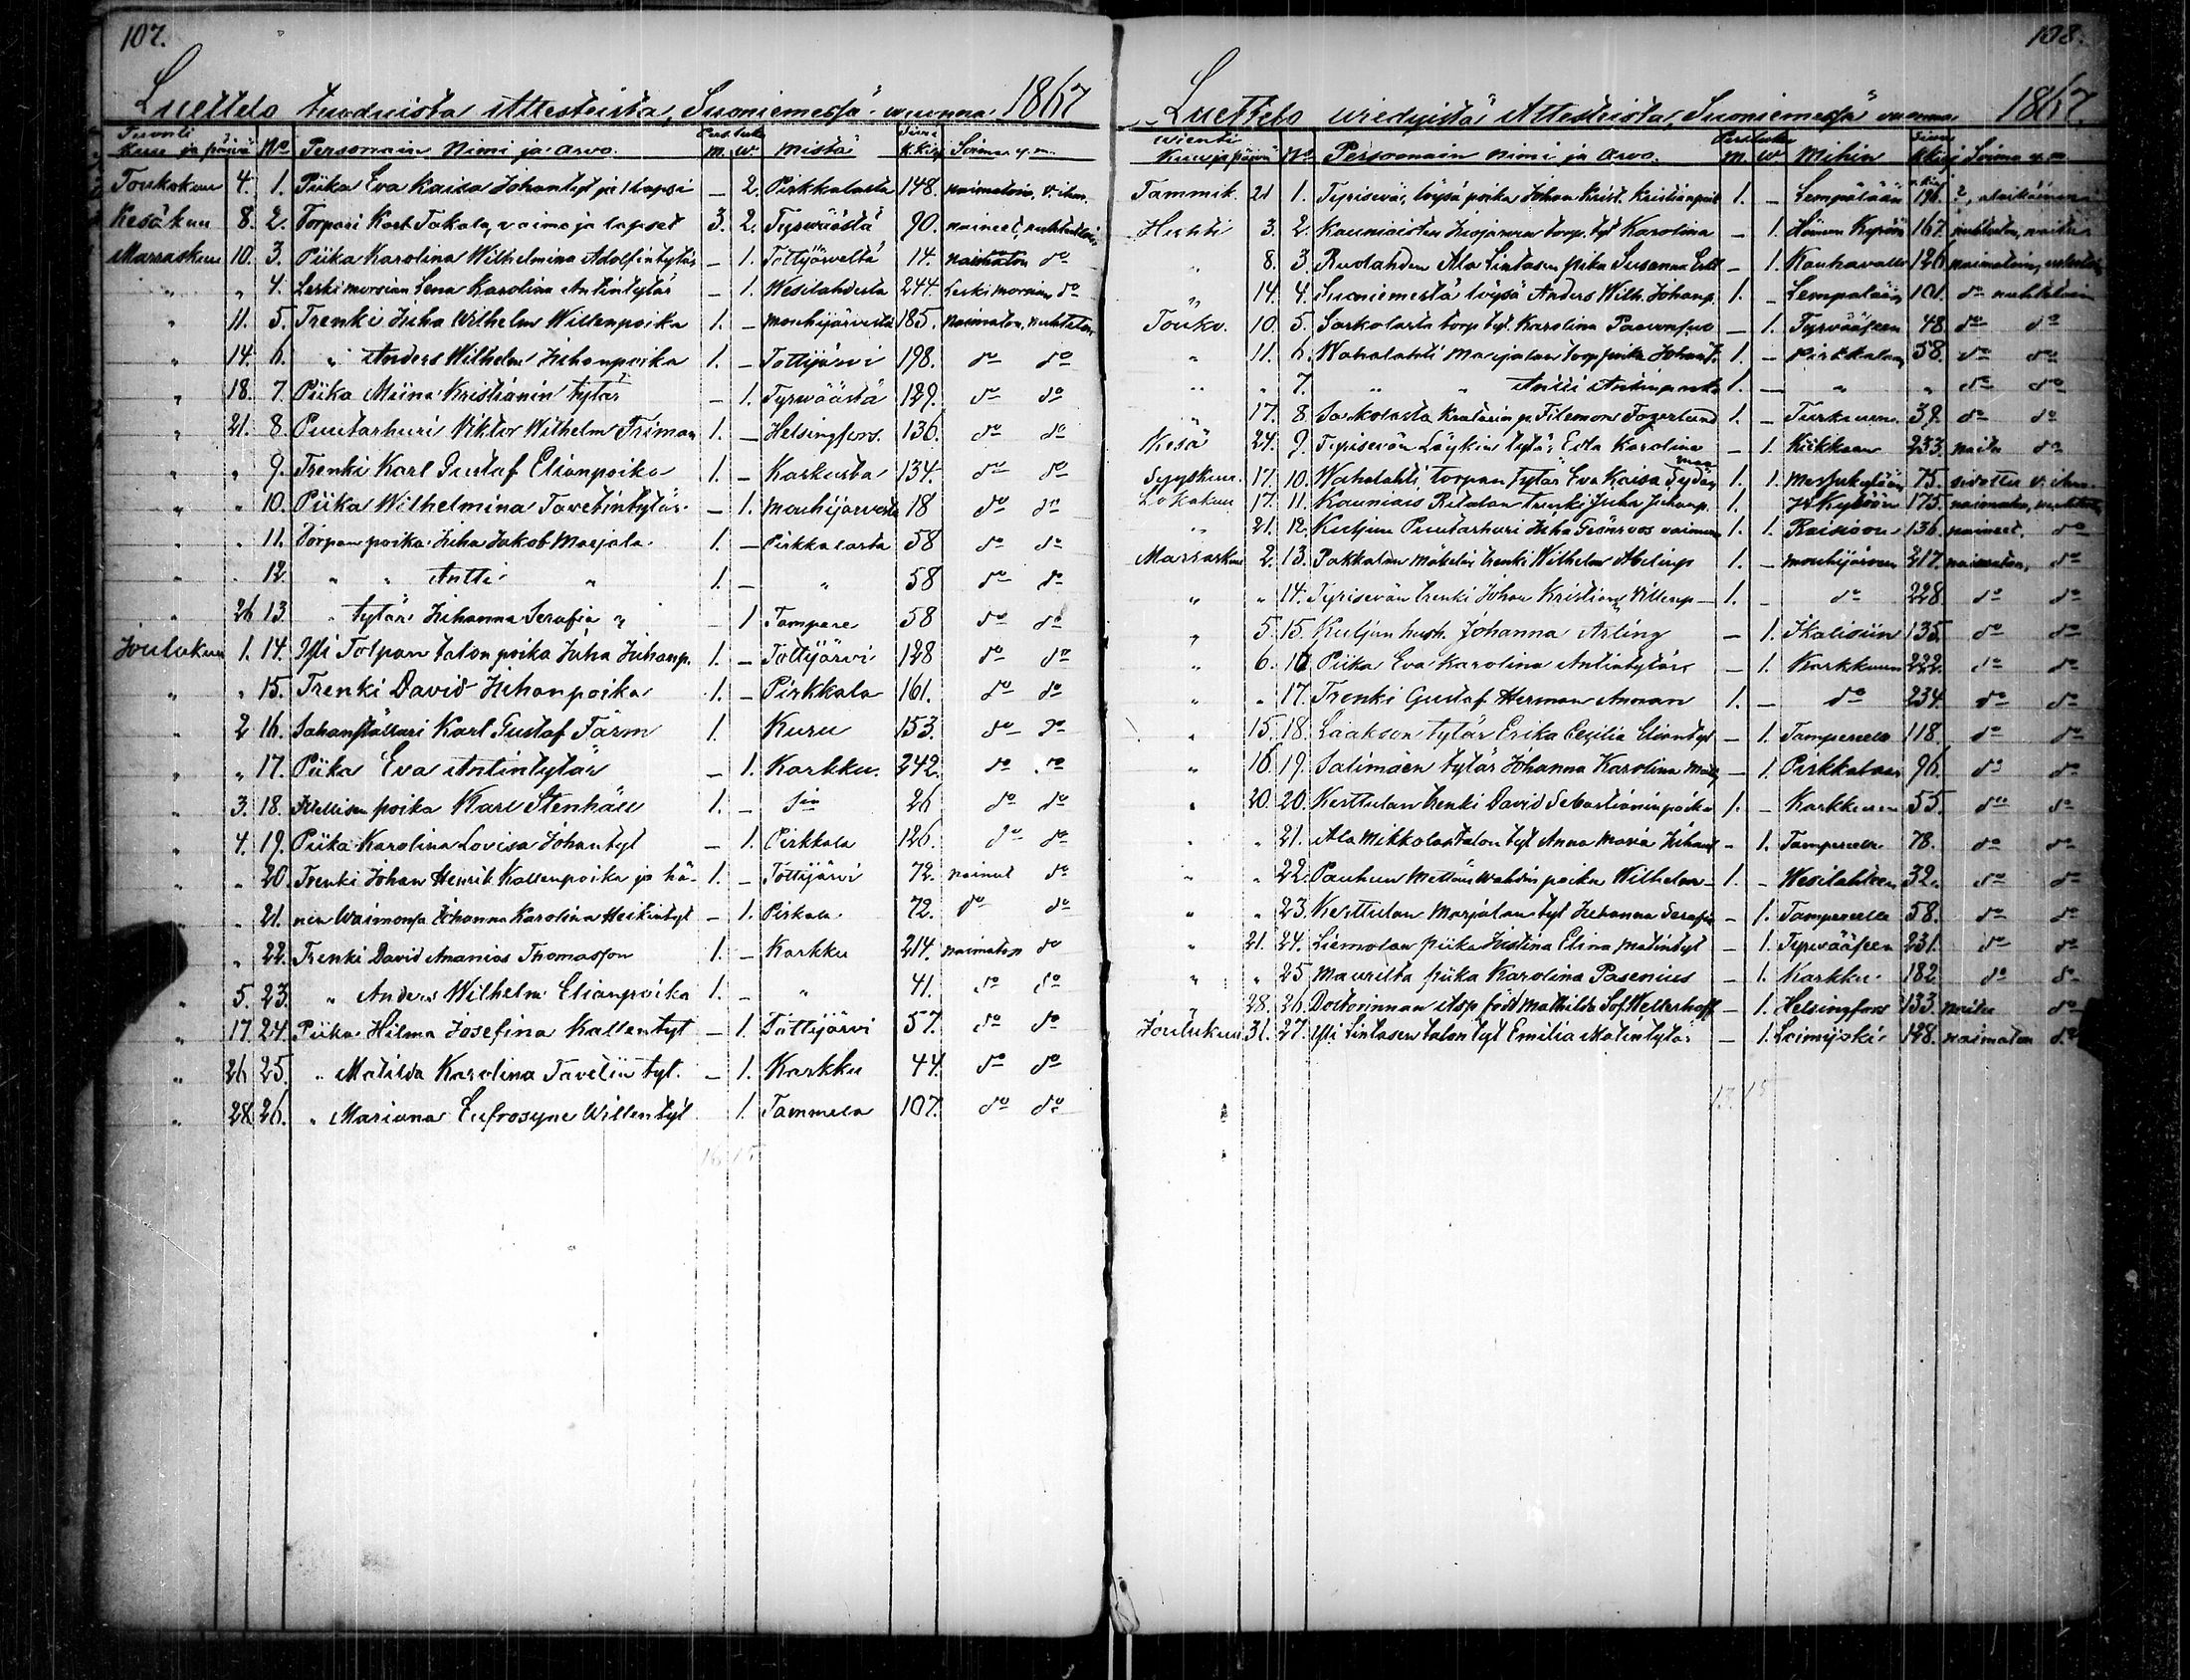 107.
Luettelo tuoduista Attesteista, Suoniemessä wuonna 1867
Tuonti Kuu ja päivä No Personain Nimi ja arvo. Pers. luku m. w. mistä Sivu k.kirj. Soimea y.m.
Toukokuu 4. 1. Piika Eva Kaisa Johantyt ja 1 lapsi – 2. Pirkkalasta 148. naimatoin, v. ihm.
Kesäkuu 8. 2. Torpari Karl Takala, vaimo ja lapset 3. 2. Tyrwäästä 90. naineet, nuhteettom.
Marraskuu 10. 3. Piika Karolina Wilhelmina Adolfintytär – 1. Tottijärveltä 14. naimaton do
" " 4. Leskimorsian Lena Karolina Antintytär – 1. Wesilahdesta 244. Leski morsian do
" 11. 5. Trenki Juha Wilhelm Willenpoika 1. – Mouhijärvestä 185. Naimaton, nuhteeton
" 14. 6. " Anders Wilhelm Juhanpoika 1. – Tottijärvi 198. do do
" 18. 7. Piika Miina Kristianin tytär – 1. Tyrwäästä 129. do do
" 21. 8. Puutarhuri Viktor Wilhelm Friman 1. – Helsingfors. 136. do do
" " 9. Trenki Karl Gustaf Elianpoika 1. – Karkusta 134. do do
" " 10. Piika Wilhelmina Tavetintytär – 1. Mouhijärvestä 18 do do
" " 11. Torpan poika Juha Jakob Marjala 1. – Pirkkalasta 58 do do
" " 12. " " Antti " 1. – " 58 do do
" 26 13. " tytär Juhanna Serafia " – 1 Tampere 58 do do
Joulukuu 1. 14. Yli Tolpan talon poika Juha Juhanp. 1. – Tottijärvi 128 do do
" " 15. Trenki David Juhanpoika 1. – Pirkkala 161. do do
" 2 16. Sahanställari Karl Gustaf Färm 1. Kuru 153. do do
" " 17. Piika Eva Antintytär – 1. Karkku. 242. do do
" 3. 18. poika Karl Stenhäll 1. – 26 do do
" 4. 19. Piika Karolina Lovisa Johantyt – 1. Pirkkala 126. do do
" " 20. Trenki Johan Henrik Kallenpoika ja hä- 1. – Tottijärvi 72. nainut do
" " 21. nen Waimonsa Johanna Karolina Heikintyt – 1. Pirkala 72. do do
" " 22. Trenki David Ananias Thomasson 1. – Karkku 214. naimaton do
" 5. 23. " Anders Wilhelm Elianpoika 1. – " 41. do do
" 17 24. Piika Hilma Josefina Kallentyt – 1. Tottijärvi 57. do do
" 26 25. " Matilda Karolina Tavetin tyt. – 1. Karkku 44. do do
" 28 26. " Mariana Eufrosyne Willentyt 1. Tammela 107. do do
16 15
108.
Luettelo wiedyistä Attesteista, Suoniemessä vuonna 1867.
Wienti Kuu ja päivä No Persoonain nimi ja arvo. Pers. luku M. W. Mihin Sivu k.kirj. Soimea y.m.
Tammik. 21 1. Tyrisevä, löysä poika Johan Krist. Kristianpoik 1. – Lempälään 196. ?, alaikäinen
Huhti 3. 2. Kauniaisten torp. tyt Karolina – 1. Hämeen Kyröön 167. nuhteeton, naitu
" 8. 3. Ruolahden Ala Lintasen piika Susanna – 1. Kauhavalle 126. naimatoin, nuhteetoin
" 14. 4. Suoniemestä löysä Anders Wilh. Johanp. 1. – Lempälään 101. do nuhtetoin
Touko. 10. 5. Sarkolasta torp. tyt. Karolina – 1. Tyrvääseen 48 do do
" 11. 6. Wahalahti Marjalan torp. poika Johan J. 1. – Pirkkalaan 58. do do
" " 7. " " Antti Antinpoika 1. – " " do do
" 17. 8. Sarkolasta Filemon Fagerlund 1. – Turkuun. 39. do do
Kesä 24. 9. Tyrisevän Läykin tytär Edla Karolina – 1. Kiikkaan 233. naitu do
Syyskuu. 17. 10. Wahalahti, torpan tytär Eva Kaisa 1. 1. Messukylään 75. sidottu v. ihm.
Lokakuu 17. 11. Kauniais Ritalan trenki Juha Juhanp. 1. H. Kyröön 175. naimaton, nuhteeton
" 21. 12. Kuljun Puutarhuri Juha Grönroos vaimoineen 1. 1. Raisioon 136. naineet. do
Marraskuu 2. 13. Pakkalan Mäkelän trenki Wilhelm Abelinp 1. – Mouhijärveen 217. naimaton, do
" " 14. Tyrisevän trenki Johan Kristian Villenp 1. – do 228 do do
" 5. 15. Kuljun hush. Johanna Arling – 1. Ikalisiin 135. do do
" 6. 16. Piika Eva Karolina Antintytär – 1. Karkkuun 222. do do
" " 17. Trenki Gustaf Herman Annan 1. – do 234. do do
" 15. 18. Laakson tytär Erika Cecilia Eliantyt – 1. Tampereelle 118. do do
" 16. 19. Salimäen tytär Johanna Karolina – 1. Pirkkalaan 96. do do
" 20. 20. Kerttulan trenki David Sebastianinpoika 1. – Karkkuun 55. do do
" " 21. Ala Mikkolan talon tyt Anna Maria Juhant – 1. Tampereelle 78. do do
" " 22. Pauhun poika Wilhelm 1. – Wesilahteen 32. do do
" " 23. Kerttulan Marjalan tyt Juhanna Serafia – 1. Tampereelle 58. do do
" 21. 24. Liemolan piika Kristina Elina Matintyt – 1. Tyrvääseen 231. do do
" " 25 Maurilta piika Karolina Pasenius – 1. Karkku 182. do do
28. 26. Doktorinnan Asp född Mathilda Sof. Hellerhoff – 1. Helsingfors 133. naitu do
Joulukuu 31. 27. Yli Lintasen talon tyt Emilia Matintytär – 1. Loimijoki 128. naimaton do